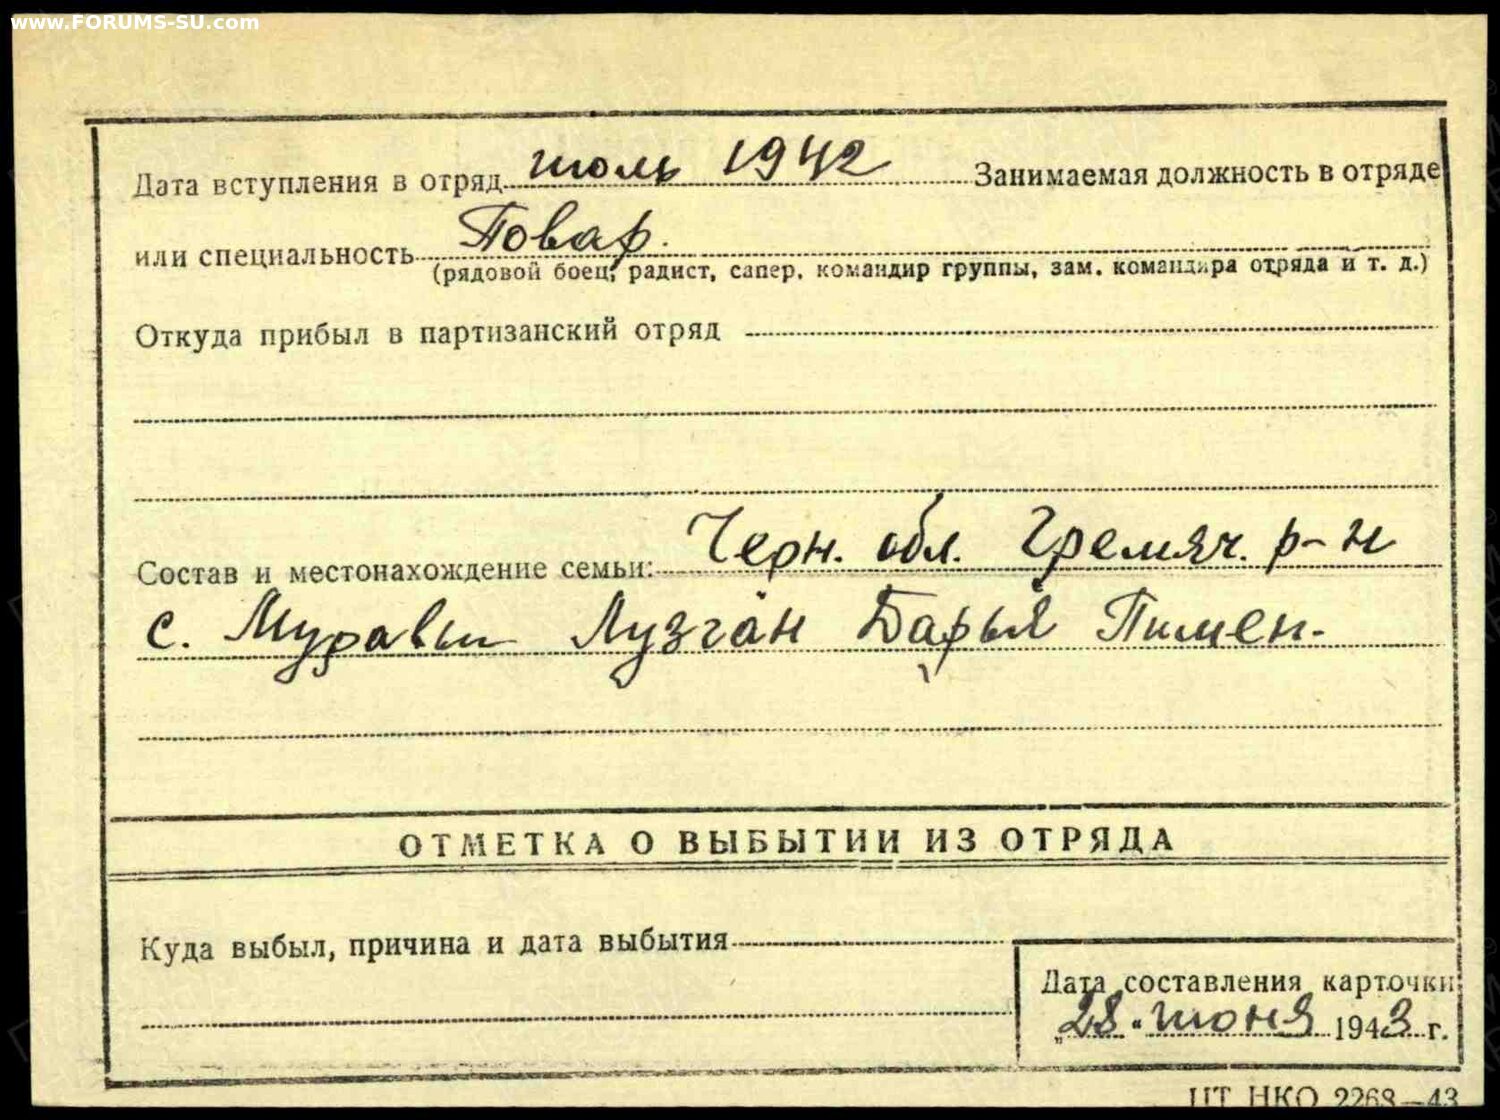 www.FORUMS-SU.com
Дата вступления в отряд июль 1942 Занимаемая должность в отряде
или специальность Повар.
(рядовой боец, радист, сапер, командир группы, зам. командира отряда и т. д.)
Откуда прибыл в партизанский отряд
Состав и местонахождение семьи: Черн. обл. Гремяч. р-н
с. Муравьи Лузган Дарья Пимен.
ОТМЕТКА О ВЫБЫТИИ ИЗ ОТРЯДА
Куда выбыл, причина и дата выбытия
Дата составления карточки
„28“ июня 1943 г.
ЦТ НКО 2268—43